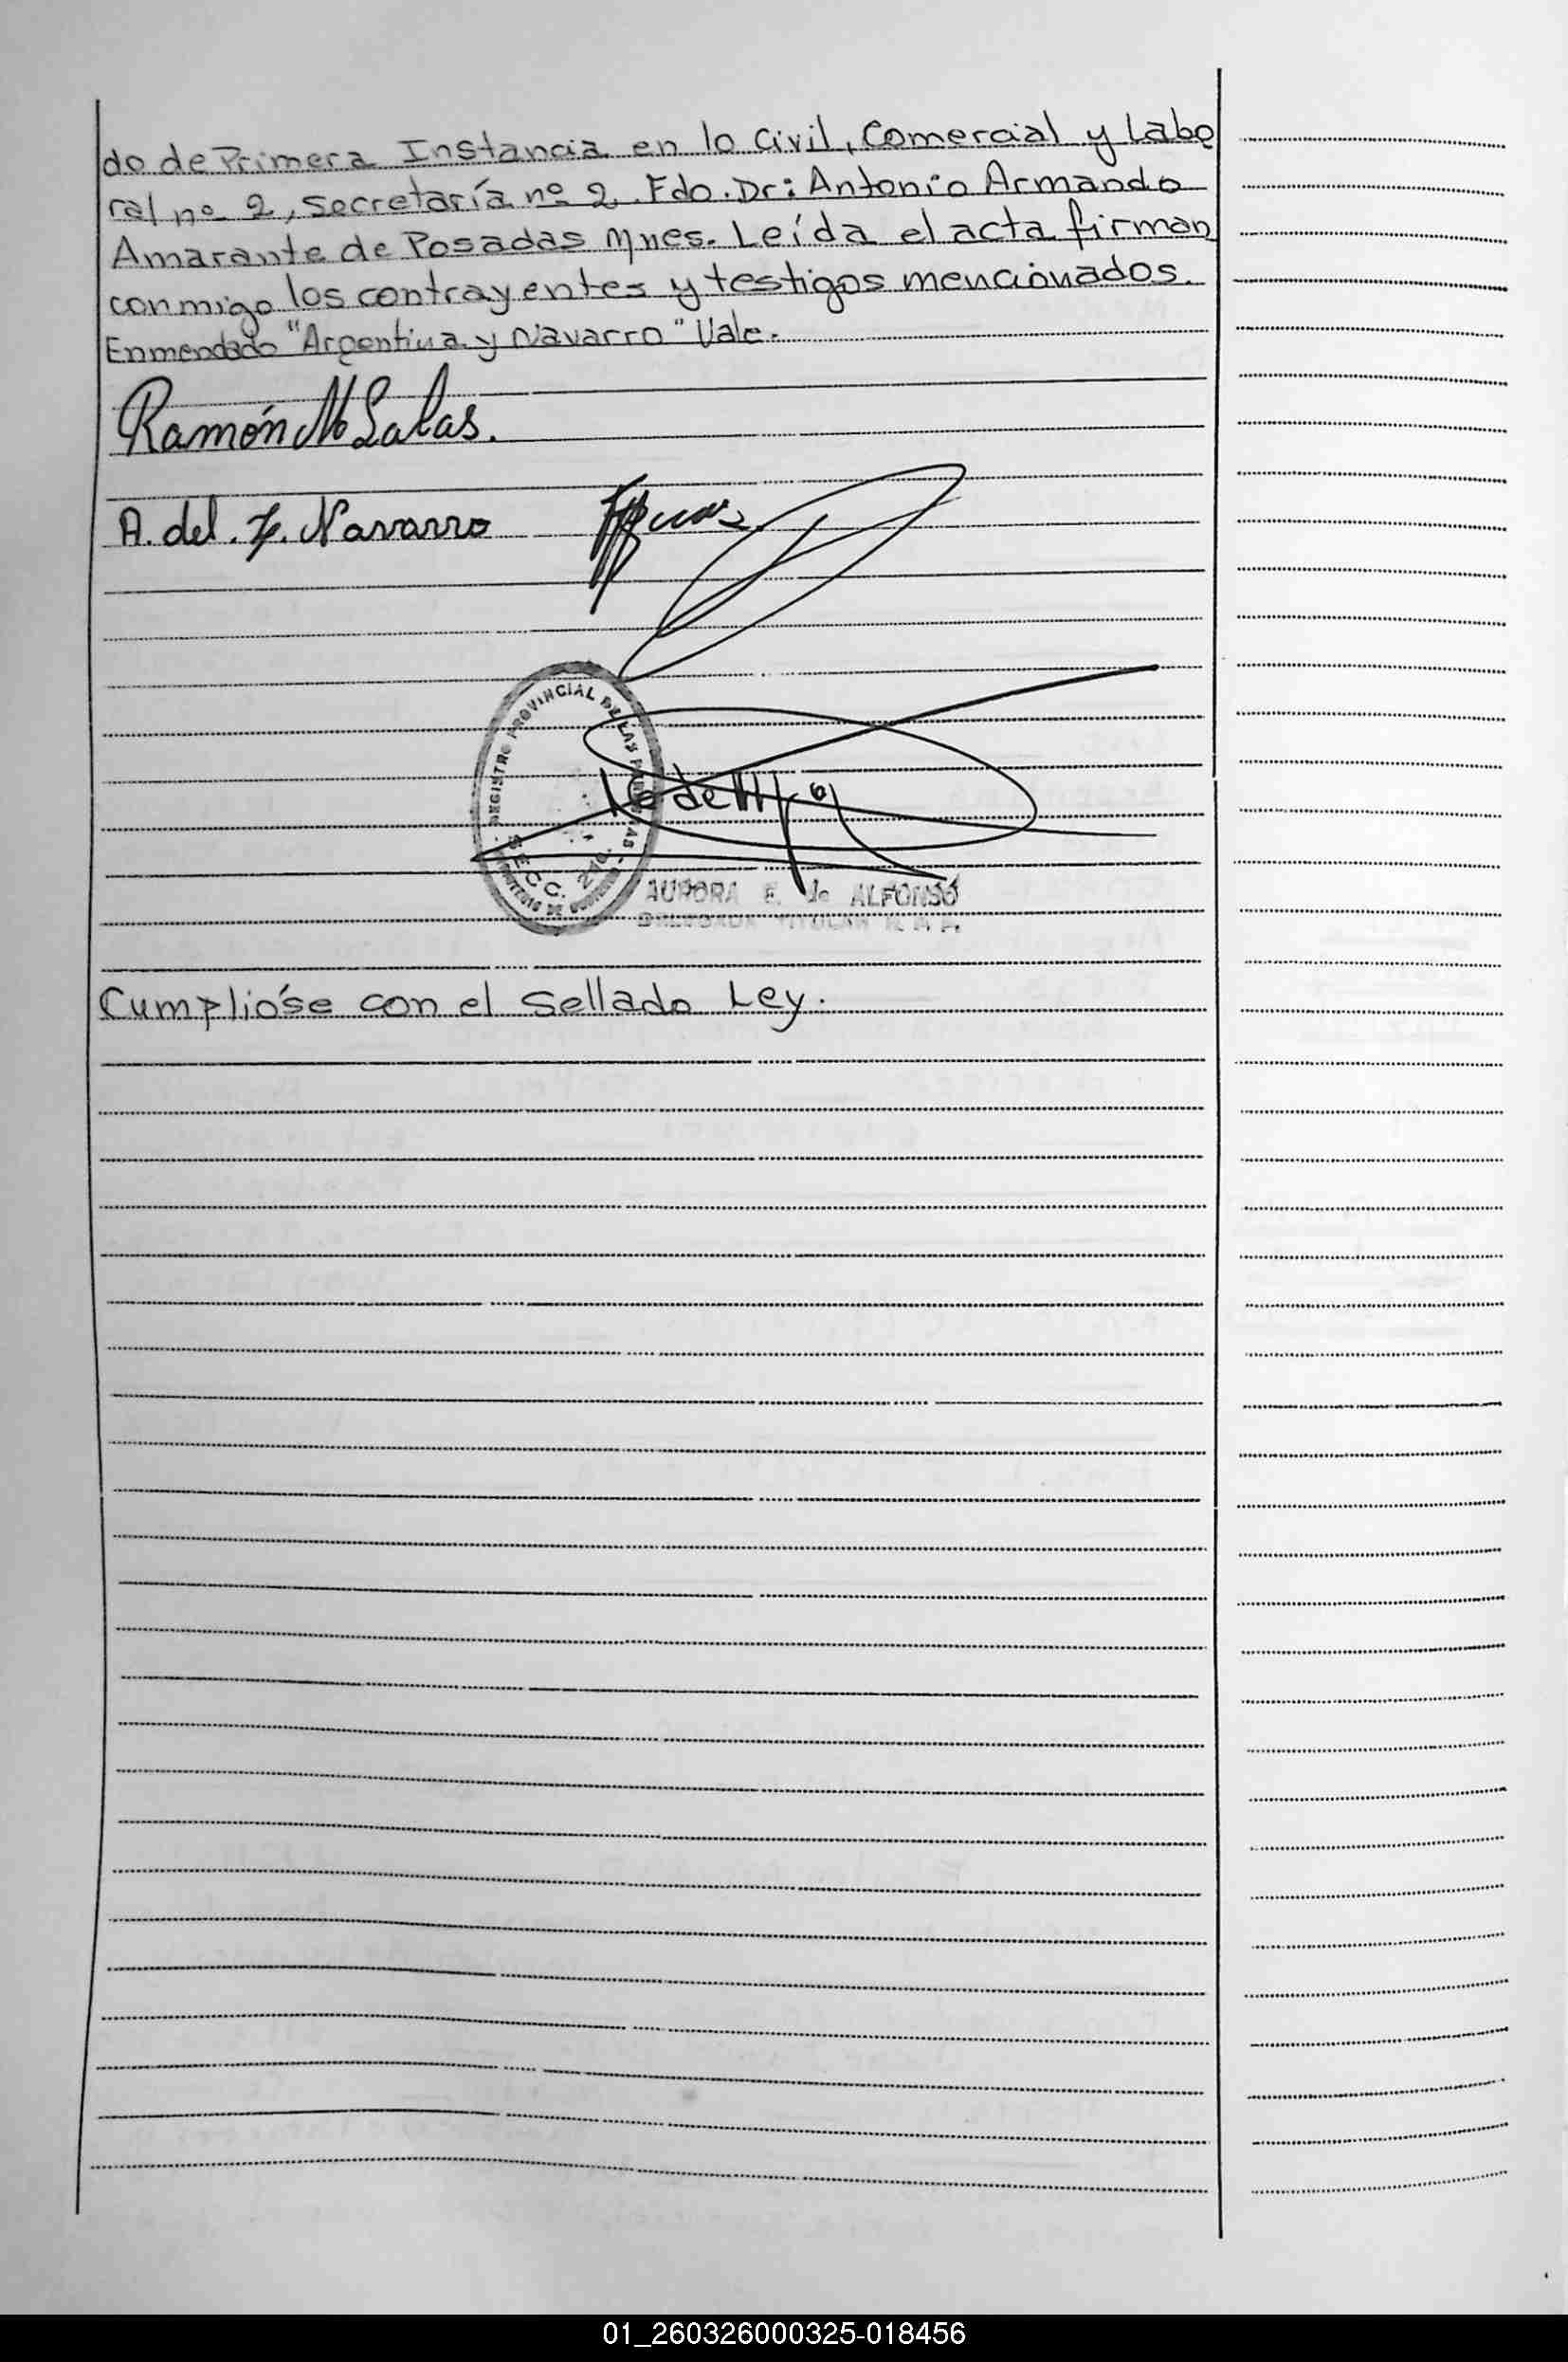 do de Primera Instancia en lo Civil, Comercial y Labo
ral nº 2, Secretaría nº 2. Fdo. Dr: Antonio Armando
Amarante de Posadas Mnes. Leída el acta firman
conmigo los contrayentes y testigos mencionados.
Enmendado "Argentina y Navarro" Vale.
Ramón M Salas.
A. del. . Navarro
REGISTRO PROVINCIAL DE LAS PERSONAS
SECC.
AURORA E. de ALFONSO
DELEGADA TITULAR R. P. P.
Cumplióse con el Sellado Ley.
01_260326000325-018456